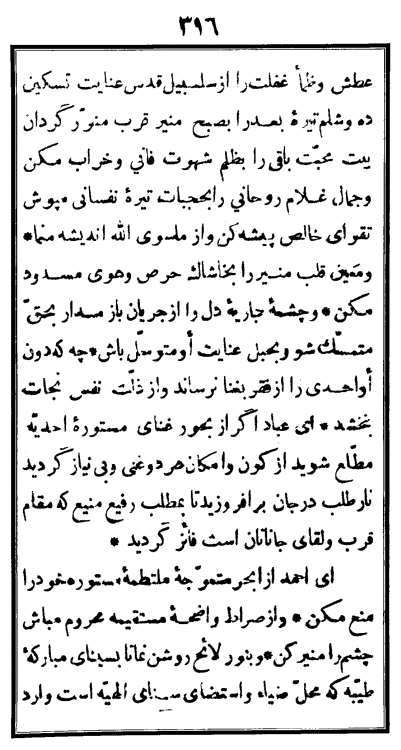 ٣١٦
عطش وظمأ غفلت را از سلسبیل قدس عنایت تسکین
ده وشام تیرهٔ بعد را بصبح منیر قرب منوّر گردان
بیت محبّت باقی را بظلم شهوت فانی وخراب مکن
وجمال غلام روحانی را بحجبات تیرهٔ نفسانی مپوش
تقوای خالص پیشه کن واز ماسوی الله اندیشه منما *
ومعین قلب منیر را بخاشاك حرص وهوی مسدود
مکن * وچشمهٔ جاریهٔ دل را از جریان باز مدار بحقّ
متمسّك شو وبحبل عنایت أو متوسّل باش * چه که دون
أو احدی را از فقر بغنا نرساند واز ذلّت نفس نجات
نبخشد * ای عباد اگر از بحور غنای مستورهٔ احدیّه
مطّلع شوید از کون وامکان هر دو غنی وبی نیاز گردید
نار طلب در جان بر افروزید تا بمطلب رفیع منیع که مقام
قرب ولقای جانانان است فائز گردید *
ای احمد از ابحر متموّجهٔ ملتطمهٔ مستوره خود را
منع مکن * واز صراط واضحهٔ مستقیمه محروم مباش
چشم را منیر کن * وبنور لائح روشن نما تا بسینای مبارکهٔ
طیّبه که محلّ ضیاء واستضای سینای الهیّه است وارد